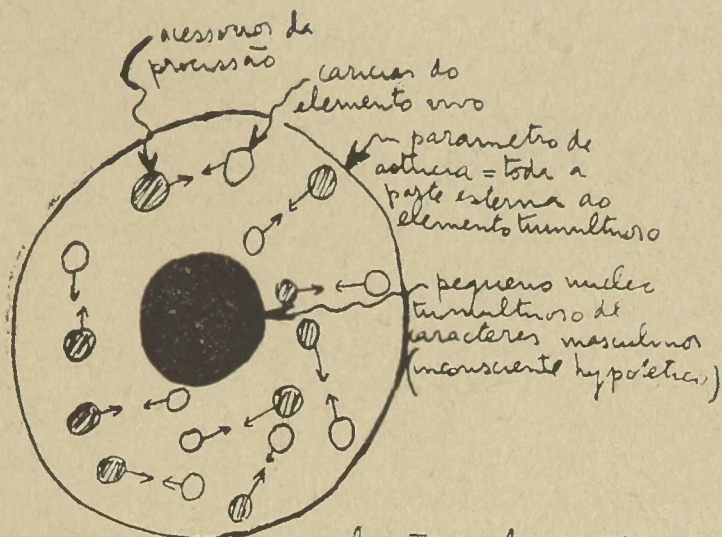 acessorios da
processão
caricias do
elemento vivo
parametro de
astucia = toda a
parte externa ao
elemento tumultuoso
pequeno nucleo
tumultuoso de
caracteres masculinos
(inconsciente hypotetico)